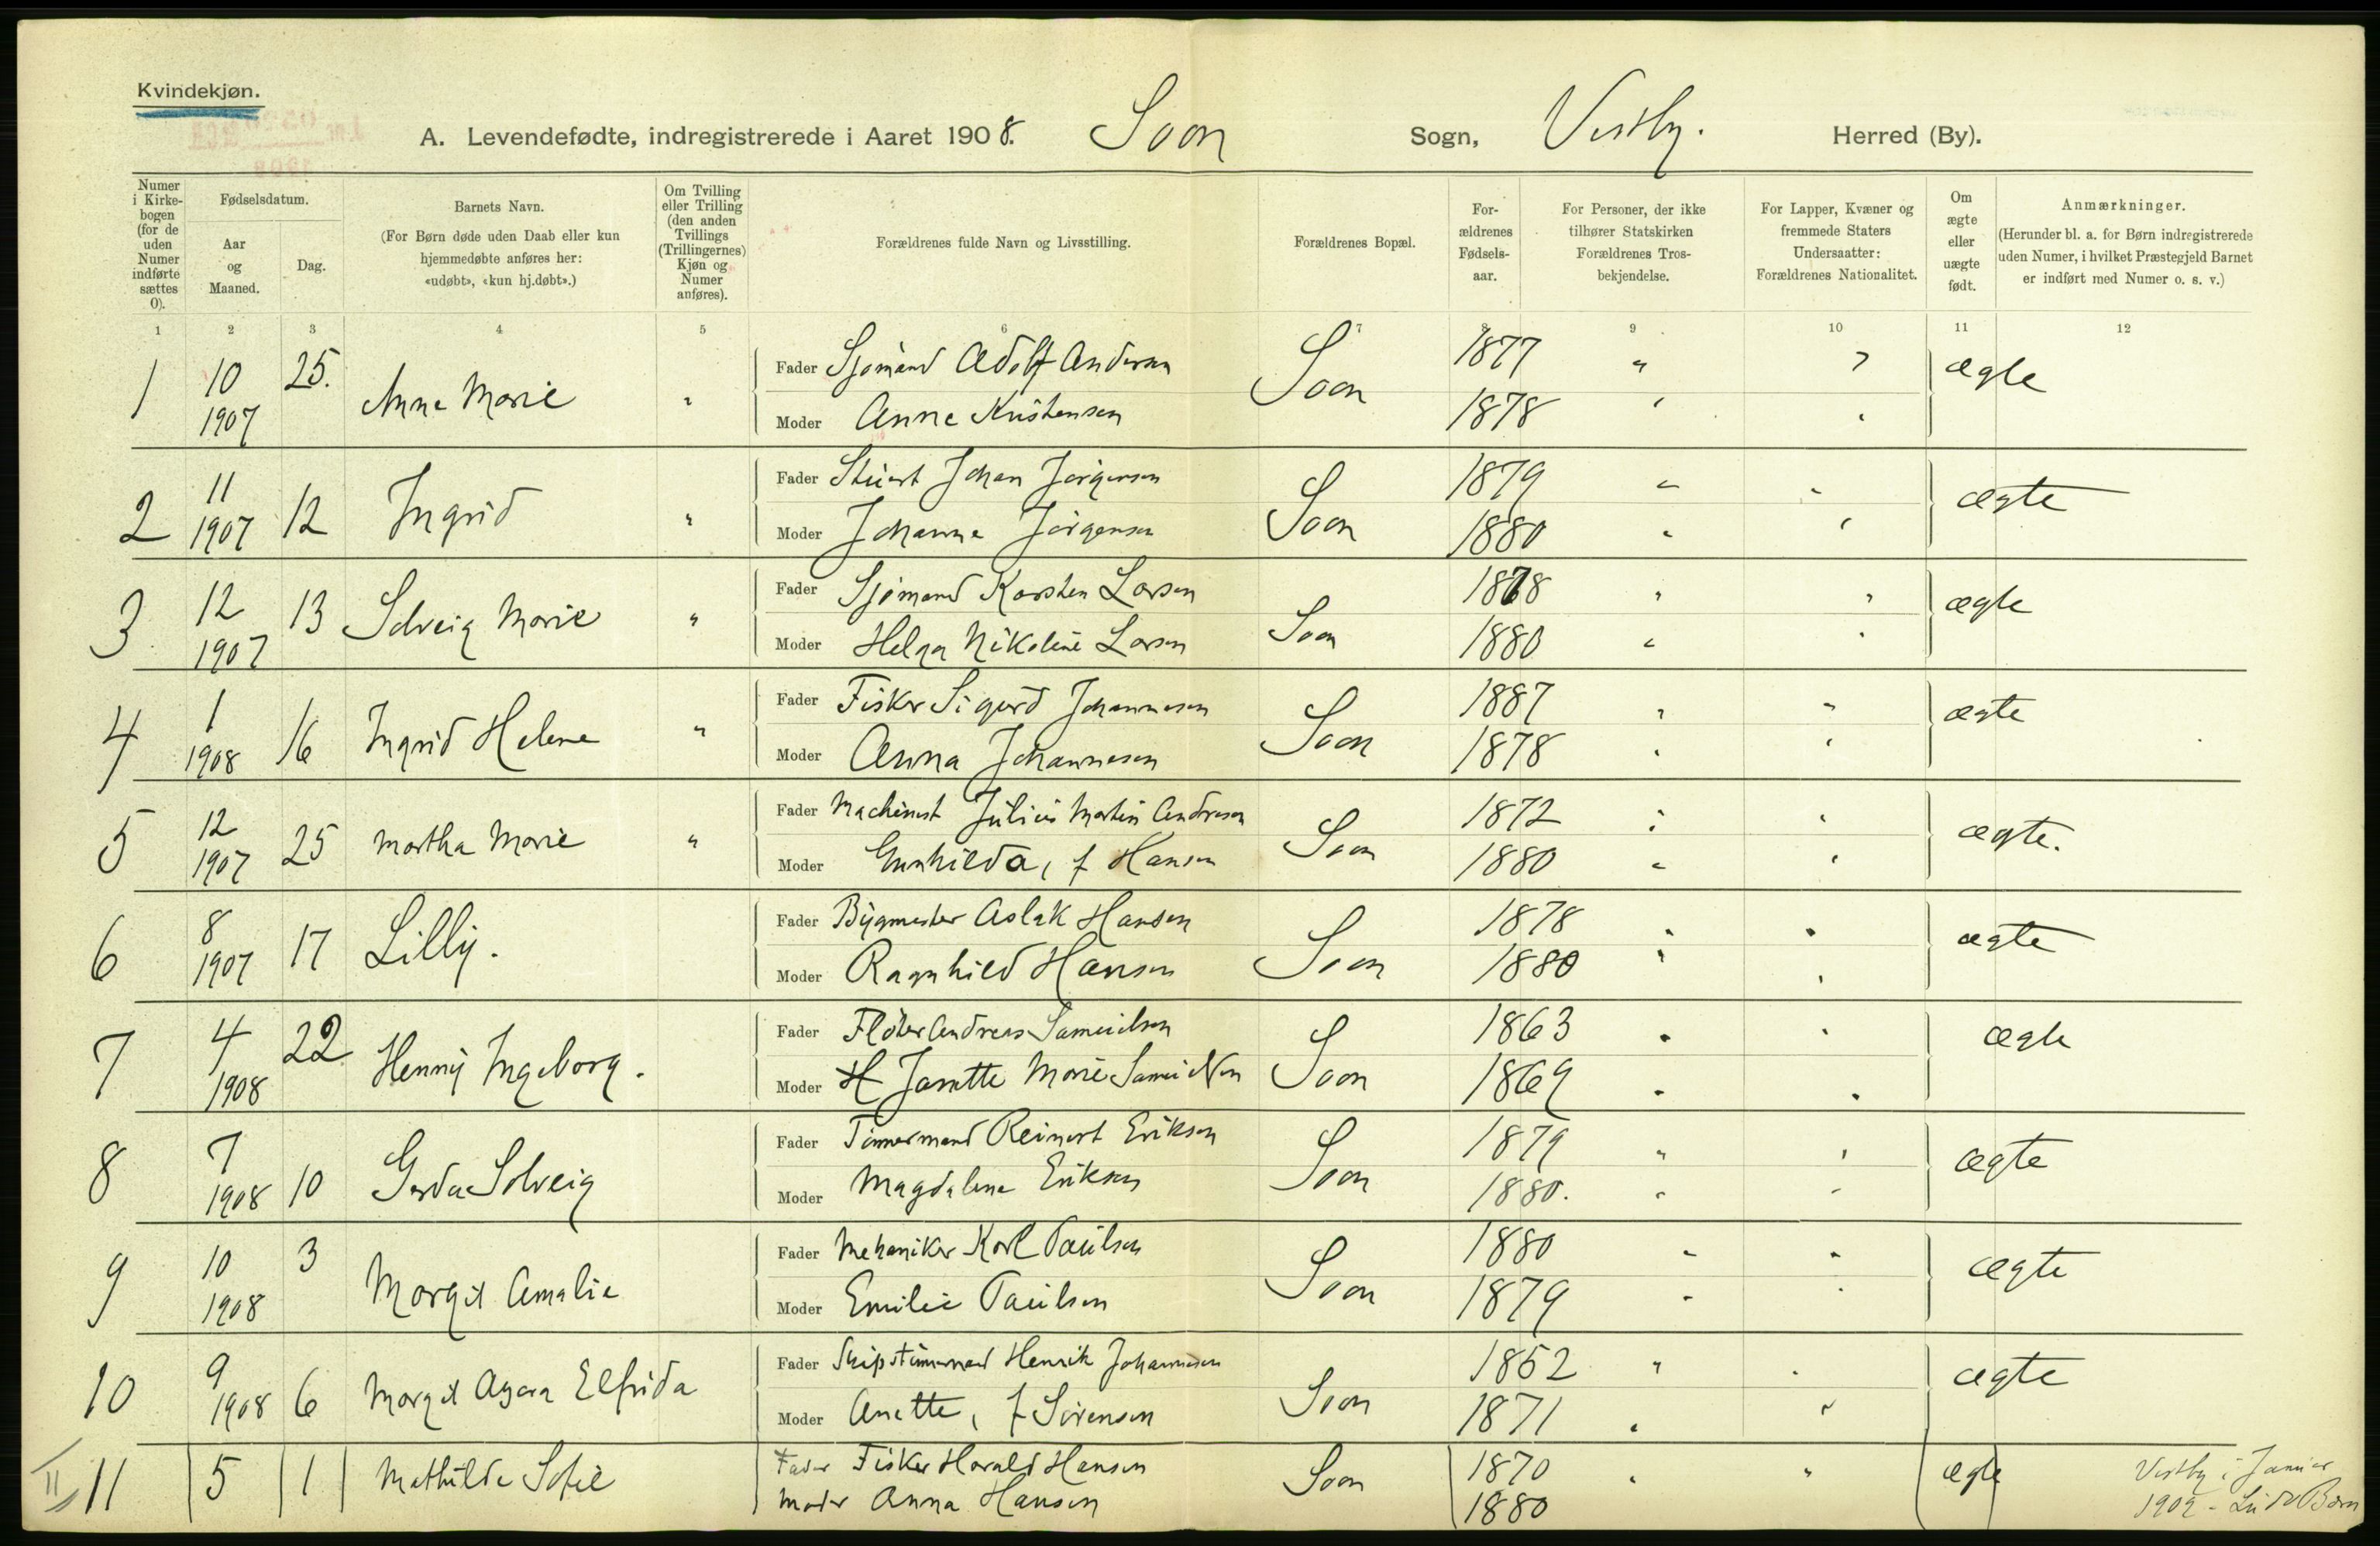 Kvindekjøn.
A. Levendefødte, indregistrerede i Aaret 1908. Soon Sogn, Vestby. Herred (By).
Numer i Kirke-bogen (for de uden Numer indførte sættes 0).
Fødselsdatum.
Aar og Maaned.
Dag.
Barnets Navn.
(For Børn døde uden Daab eller kun hjemmedøbte anføres her: «udøbt», «kun hj.døbt».)
Om Tvilling eller Trilling (den anden Tvillings (Trillingernes) Kjøn og Numer anføres).
Forældrenes fulde Navn og Livsstilling.
Forældrenes Bopæl.
For-ældrenes Fødsels-aar.
For Personer, der ikke tilhører Statskirken Forældrenes Tros-bekjendelse.
For Lapper, Kvæner og fremmede Staters Undersaatter: Forældrenes Nationalitet.
Om ægte eller uægte født.
Anmærkninger.
(Herunder bl. a. for Børn indregistrerede uden Numer, i hvilket Præstegjeld Barnet er indført med Numer o. s. v.)
1 2 3 4 5 6 7 8 9 10 11 12
1 10 1907 25. Anna Marie " Fader Sjømand Adolf Andersen Soon 1877 " " ægte
Moder Anne Kristensen 1878 " "
2 11 1907 12 Ingrid " Fader Stuert Johan Jørgensen Soon 1879 " " ægte
Moder Johanna Jørgensen 1880 " "
3 12 1907 13 Solveig Marie " Fader Sjømand Karsten Larsen Soon 1878 " " ægte
Moder Helga Nikoline Larsen 1880 " "
4 1 1908 16 Ingrid Helene " Fader Fisker Sigurd Johannesen Soon 1887 " " ægte
Moder Anna Johannesen 1878 " "
5 12 1907 25 Martha Marie " Fader Machinist Julius Martin Andresen Soon 1872 " " ægte.
Moder Gunhilda, f Hansen 1880 " "
6 8 1907 17 Lilly. Fader Bygmester Aslak Hansen Soon 1878 " " ægte
Moder Ragnhild Hansen 1880 " "
7 4 1908 22 Henny Ingeborg. Fader Fløter Andreas Samuelsen Soon 1863 " " ægte
Moder H Janette Marie Samuelsen 1869 " "
8 7 1908 10 Gerda Solveig Fader Tømmermand Reinert Eriksen Soon 1879 " " ægte
Moder Magdalena Eriksen 1880. " "
9 10 1908 3 Margit Amalie Fader Mekaniker Karl Paulsen Soon 1880 " " ægte
Moder Emilie Paulsen 1879 " "
10 9 1908 6 Margit Agara Elfrida Fader Skipstømmermand Henrik Johannesen Soon 1852 " " ægte
Moder Anette, f Sørensen 1871 " "
II 11 5 1 Mathilde Sofie Fader Fisker Harald Hansen Soon 1870 " " ægte
Moder Anna Hansen 1880
Vestby i Januar
1909